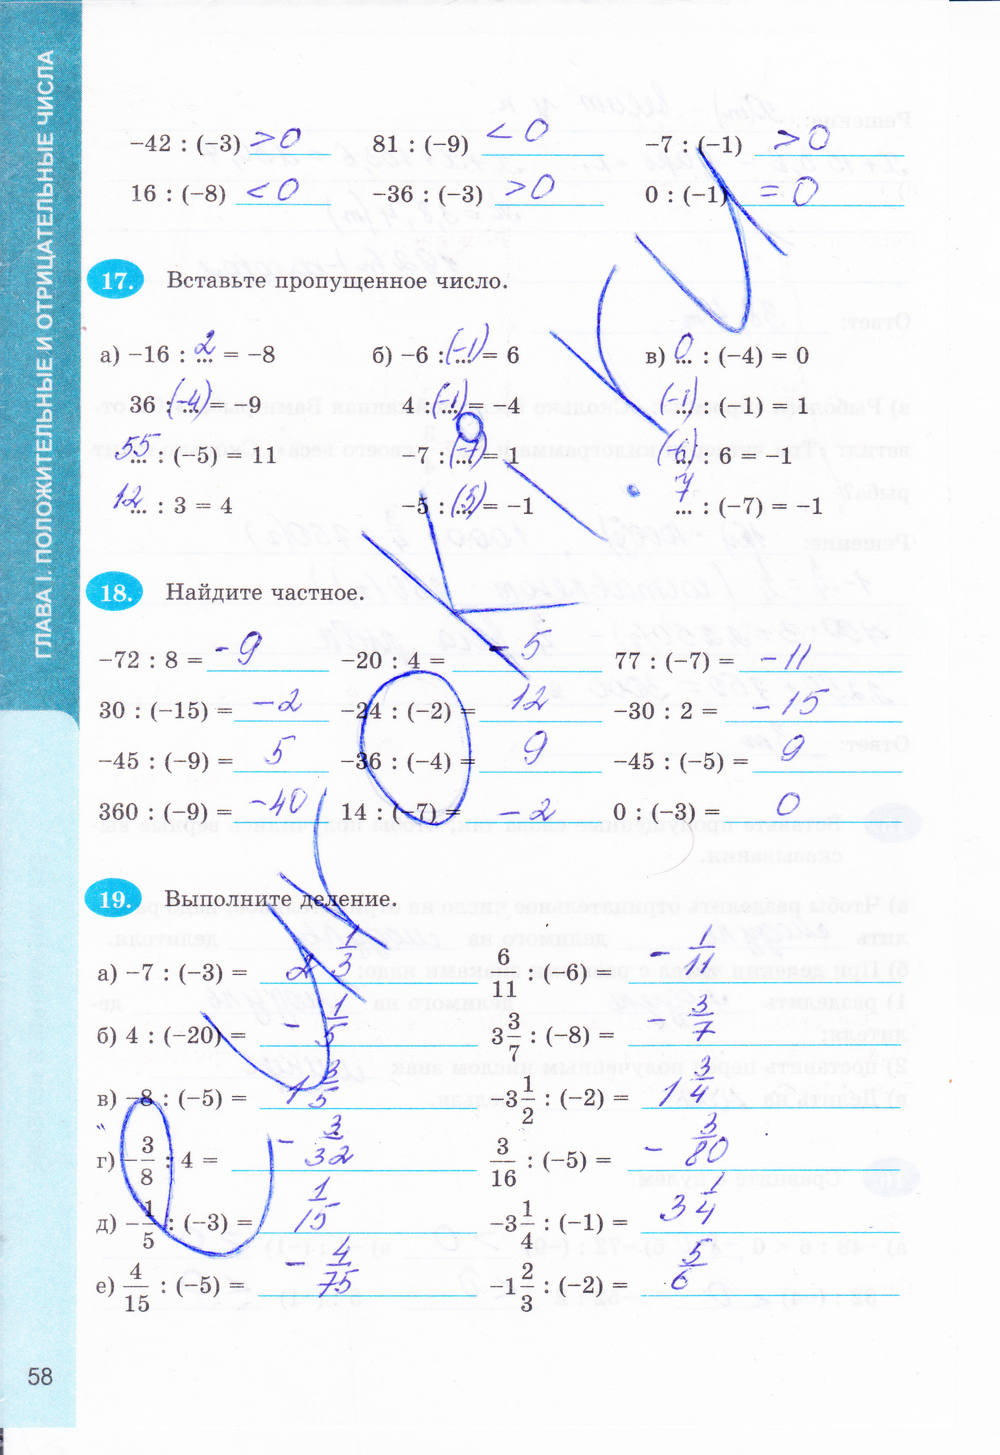 ГЛАВА I. ПОЛОЖИТЕЛЬНЫЕ И ОТРИЦАТЕЛЬНЫЕ ЧИСЛА
−42 : (−3) > 0 81 : (−9) < 0 −7 : (−1) > 0
16 : (−8) < 0 −36 : (−3) > 0 0 : (−1) = 0
17. Вставьте пропущенное число.
а) −16 : 2 = −8 б) −6 : (−1) = 6 в) 0 : (−4) = 0
36 : (−4) = −9 4 : (−1) = −4 (−1) : (−1) = 1
55 : (−5) = 11 −7 : (−7) = 1 (−6) : 6 = −1
12 : 3 = 4 −5 : (5) = −1 7 : (−7) = −1
18. Найдите частное.
−72 : 8 = −9 −20 : 4 = −5 77 : (−7) = −11
30 : (−15) = −2 −24 : (−2) = 12 −30 : 2 = −15
−45 : (−9) = 5 −36 : (−4) = 9 −45 : (−5) = 9
360 : (−9) = −40 14 : (−7) = −2 0 : (−3) = 0
19. Выполните деление.
а) −7 : (−3) = 2 1/3 6/11 : (−6) = −1/11
б) 4 : (−20) = −1/5 3 3/7 : (−8) = −3/7
в) −8 : (−5) = 1 3/5 −3 1/2 : (−2) = 1 3/4
г) −3/8 : 4 = −3/32 3/16 : (−5) = −3/80
д) −1/5 : (−3) = 1/15 −3 1/4 : (−1) = 3 1/4
е) 4/15 : (−5) = −4/75 −1 2/3 : (−2) = 5/6
58